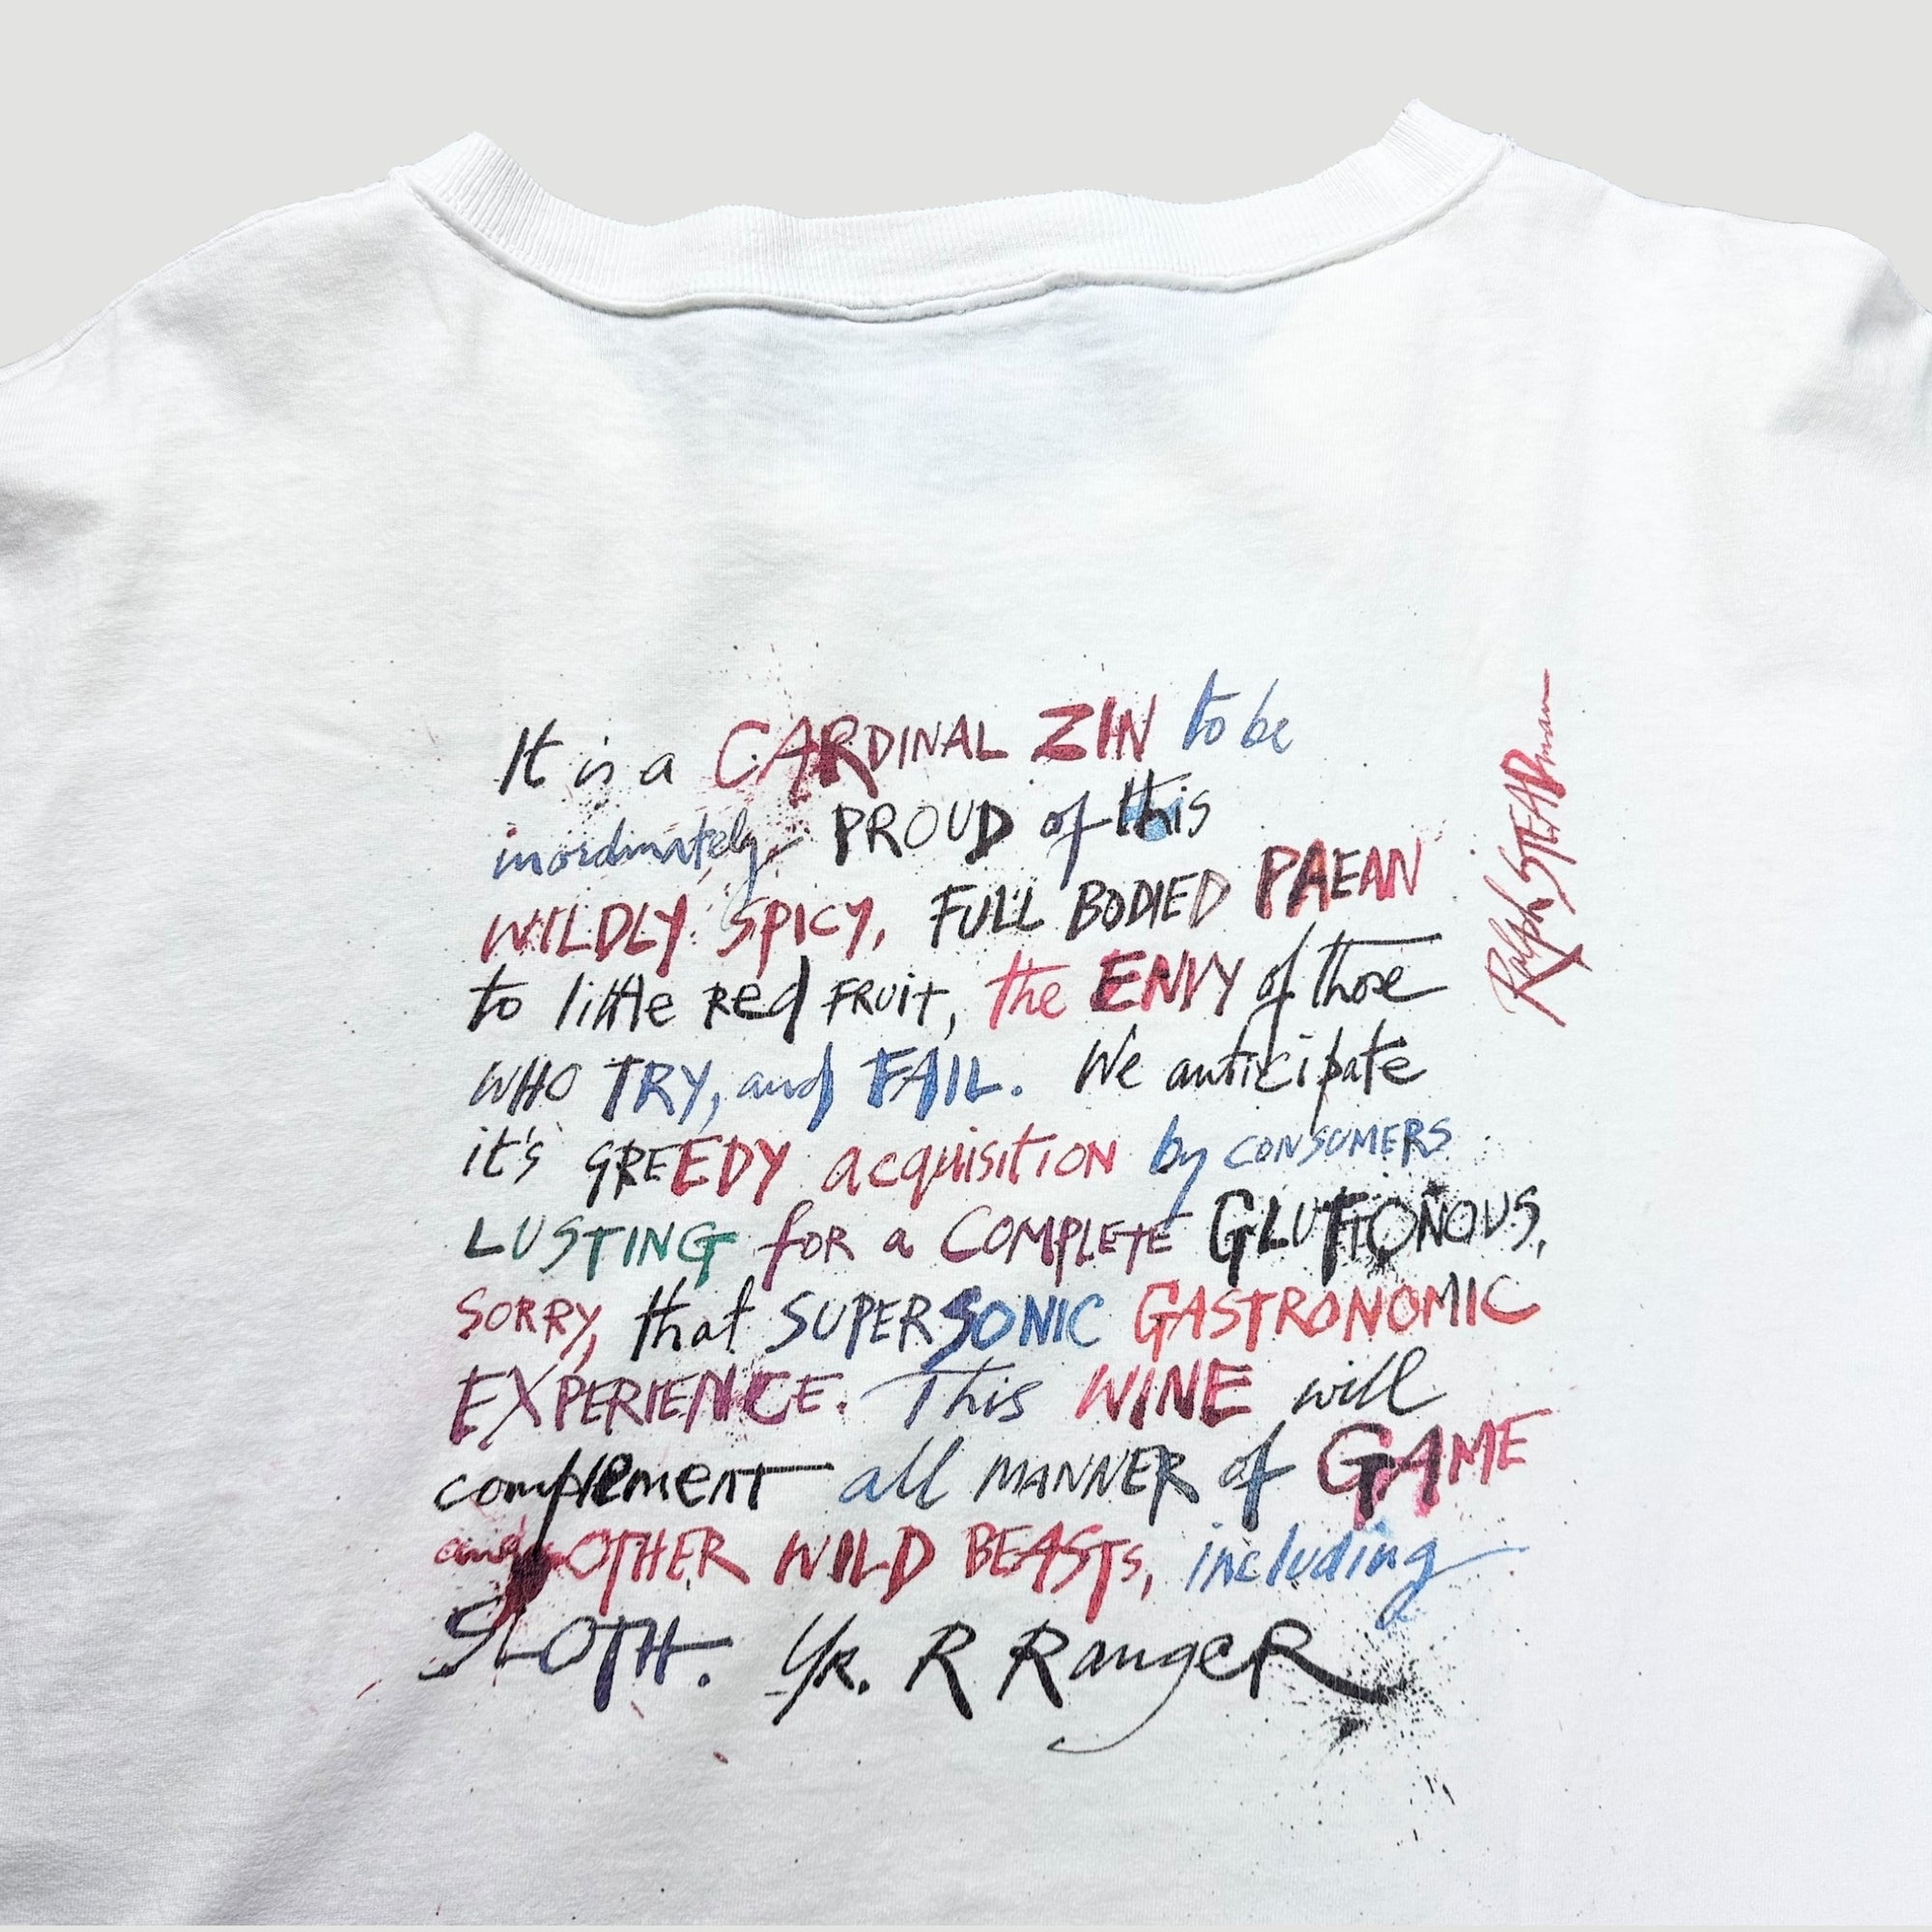 It is a CARDINAL ZIN to be
inordinately PROUD of this
WILDLY SPICY, FULL BODIED PAEAN
to little red FRUIT, the ENVY of those
WHO TRY, and FAIL. We anticipate
it's GREEDY acquisition by CONSUMERS
LUSTING for a COMPLETE GLUTTONOUS,
SORRY, that SUPERSONIC GASTRONOMIC
EXPERIENCE. This WINE will
complement all MANNER of GAME
and OTHER WILD BEASTS, including
SLOTH. YR. R RangeR
Ralph STEADman